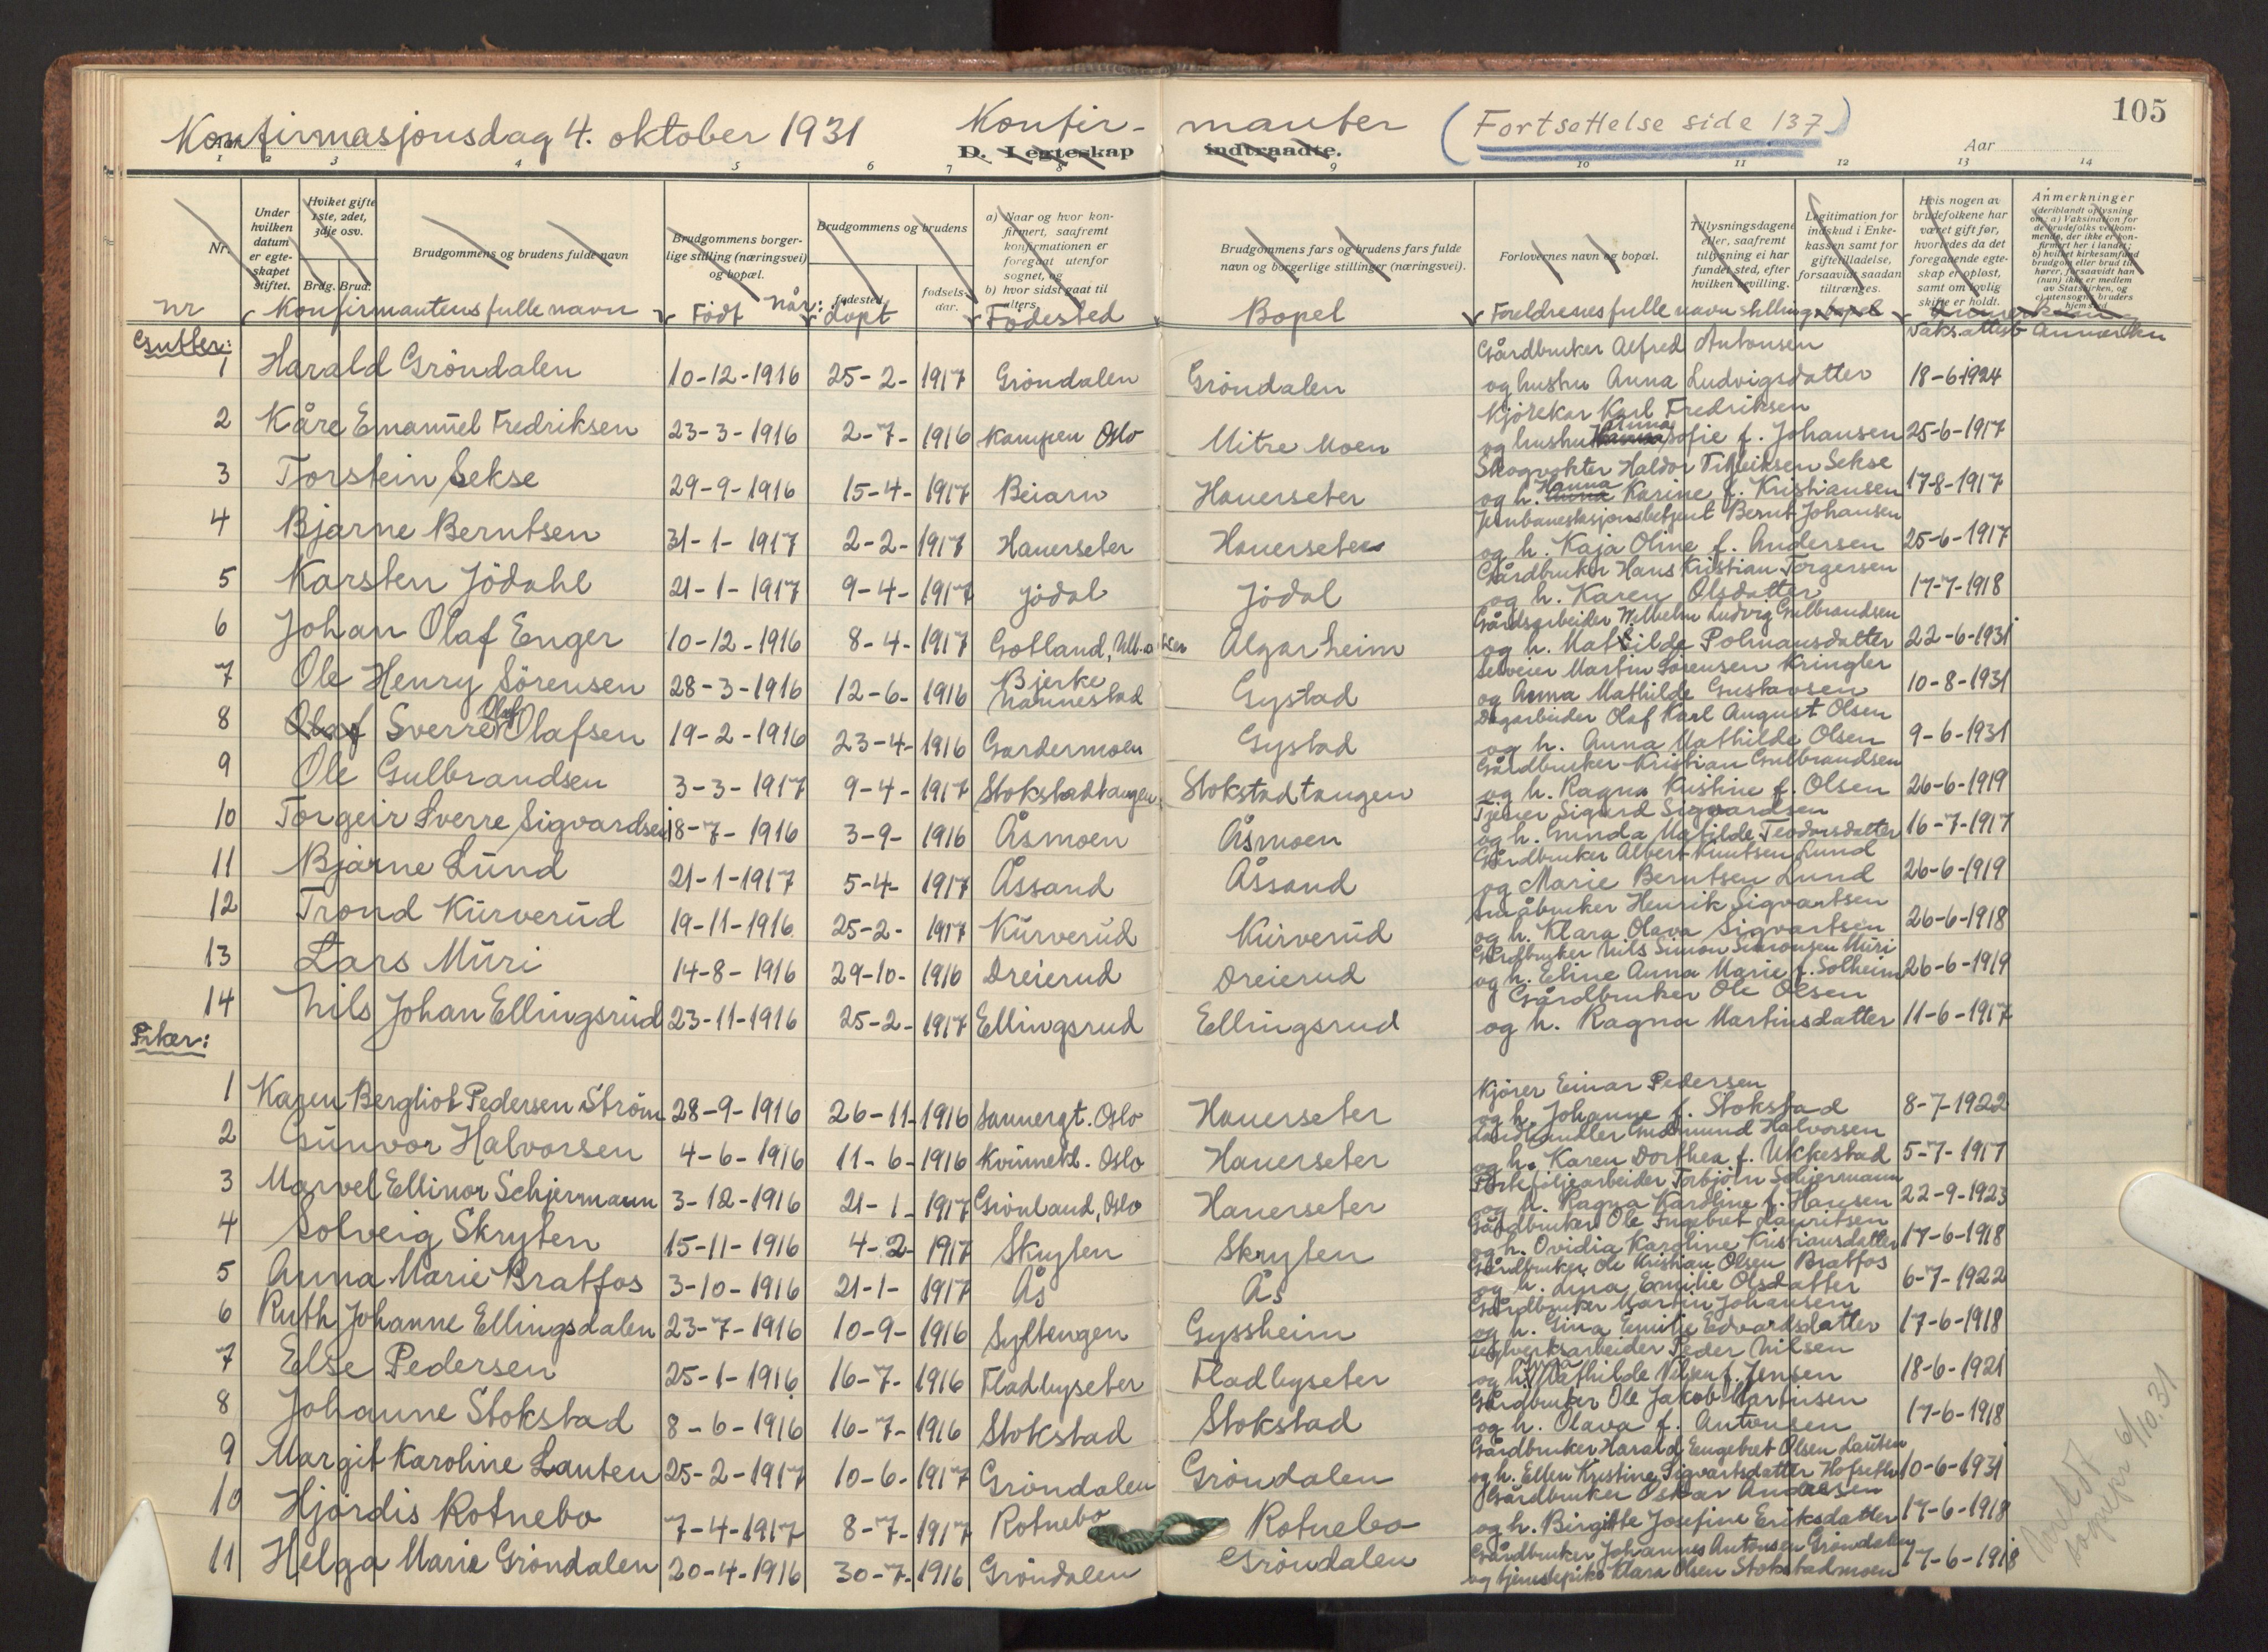 105
Konfirmasjonsdag 4. oktober 1931 Konfir- manter (Fortsettelse side 137)
D. Egteskap indtraadte. Aar
1 2 3 4 5 6 7 8 9 10 11 12 13 14
Nr.
Under hvilken datum er egte-skapet stiftet.
Hvilket gifte 1ste, 2det, 3dje osv.
Brdg. Brud.
Brudgommens og brudens fulde navn
Brudgommens borger-lige stilling (næringsvei) og bopæl.
Brudgommens og brudens
fødested. fødsels-dar.
a) Naar og hvor kon-firmert, saafremt konfirmationen er foregaat utenfor sognet, og
b) hvor sidst gaat til alters.
Brudgommens fars og brudens fars fulde navn og borgerlige stillinger (næringsvei).
Forlovernes navn og bopæl.
Tillysningsdagene eller, saafremt tillysning ei har fundet sted, efter hvilken bevilling.
Legitimation for indskud i Enke-kassen samt for giftetilladelse, forsaavidt saadan tiltrænges.
Hvis nogen av brudefolkene har været gift før, hvorledes da det foregaaende egte-skap er opløst, samt om lovlig skifte er holdt.
Anmerkninger
nr Konfirmantens fulle navn Født når: døpt Fødested Bopel Foreldrenes fulle navn stilling bopel Vaks.attest Anmerkn
Gutter:
1 Harald Gröndalen 10-12-1916 25-2-1917 Gröndalen Gröndalen Gårdbruker Alfred Antonsen
og hustru Anna Ludvigsdatter 18-6-1924
2 Kåre Emanuel Fredriksen 23-3-1916 2-7-1916 Kampen Oslo Mitre Moen Kjörekar Karl Fredriksen
og hustru Hanna Anna Sofie f. Johansen 25-6-1917
3 Torstein Sekse 29-9-1916 15-4-1917 Beiarn Hauerseter Skogvokter Haldor Sekse
og h. Anna Hanna Karine f. Kristiansen 17-8-1917
4 Bjarne Berntsen 31-1-1917 2-2-1917 Hauerseter Hauerseter Jernbanestasjonsbetjent Bernt Johansen
og h. Kaja Oline f. Andersen 25-6-1917
5 Karsten Jödahl 21-1-1917 9-4-1917 Jödal Jödal Gårdbruker Hans Kristian Torgersen
og h. Karen Olsdatter 17-7-1918
6 Johan Olaf Enger 10-12-1916 8-4-1917 Gotland, Algarheim Gårdsarbeider Wilhelm Ludvig Gulbrandsen
og h. Mathilde Polmansdatter 22-6-1931
7 Ole Henry Sörensen 28-3-1916 12-6-1916 Bjerke Nannestad Gystad Selveier Martin Sörensen Kringler
og Anna Mathilde Gustavsen 10-8-1931
8 Olaf Sverre Olaf Olafsen 19-2-1916 23-4-1916 Gardermoen Gystad Dagarbeider Olaf Karl August Olsen
og h. Anna Mathilde Olsen 9-6-1931
9 Ole Gulbrandsen 3-3-1917 9-4-1917 Stokstadtangen Stokstadtangen Gårdbruker Kristian Gulbrandsen
og h. Ragna Kristine f. Olsen 26-6-1919
10 Torgeir Sverre Sigvardsen 18-7-1916 3-9-1916 Åsmoen Åsmoen Tjener Sigurd Sigvardsen
og h. Gunda Matilde Teodorsdatter 16-7-1917
11 Bjarne Lund 21-1-1917 5-4-1917 Åssand Åssand Gårdbruker Albert Knutsen Lund
og Marie Berntsen Lund 26-6-1919
12 Trond Kurverud 19-11-1916 25-2-1917 Kurverud Kurverud Småbruker Henrik Sigvartsen
og h. Klara Olava Sigvartsen 26-6-1918
13 Lars Muri 14-8-1916 29-10-1916 Dreierud Dreierud Gårdbruker Nils Simon Simonsen Muri
og h. Eline Anna Marie f. Solheim 26-6-1919
14 Nils Johan Ellingsrud 23-11-1916 25-2-1917 Ellingsrud Ellingsrud Gårdbruker Ole Olsen
og h. Ragna Martinsdatter 11-6-1917
Piker:
1 Karen Bergliot Pedersen Ström 28-9-1916 26-11-1916 Sannergt. Oslo Hauerseter Kjörer Einar Pedersen
og h. Johanne f. Stokstad 8-7-1922
2 Gunvor Halvorsen 4-6-1916 11-6-1916 Kvinnekl. Oslo Hauerseter Landhandler Gudmund Halvorsen
og h. Karen Dorthea f. Ukkestad 5-7-1917
3 Marvel Ellinor Schjermann 3-12-1916 21-1-1917 Grönland, Oslo Hauerseter Porteföljearbeider Torbjörn Schjermann
og h. Ragna Karoline f. Hansen 22-9-1923
4 Solveig Skryten 15-11-1916 4-2-1917 Skryten Skryten Gårdbruker Ole Ingebret Lauritsen
og h. Ovidia Karoline Kristiansdatter 17-6-1918
5 Anna Marie Bratfos 3-10-1916 21-1-1917 Ås Ås Gårdbruker Ole Kristian Olsen Bratfos
og h. Lina Emilie Olsdatter 6-7-1922
6 Ruth Johanne Ellingsdalen 23-7-1916 10-9-1916 Syltengen Gyssheim Gårdbruker Martin Johansen
og h. Gina Emilie Edvardsdatter 17-6-1918
7 Else Pedersen 25-1-1916 16-7-1916 Fladbyseter Fladbyseter Teglverksarbeider Peder Nilsen
og h. Mathilde Nilsen f. Jensen 18-6-1921
8 Johanne Stokstad 8-6-1916 16-7-1916 Stokstad Stokstad Gårdbruker Ole Jakob Martinsen
og h. Olava f. Antonsen 17-6-1918
9 Margit Karoline Lauten 25-2-1917 10-6-1917 Gröndalen Gröndalen Gårdbruker Harald Engebret Olsen Lauten
og h. Ellen Kristine Sigvartsdatter Hofseth 10-6-1931
10 Hjördis Rotnebo 7-4-1917 8-7-1917 Rotnebo Rotnebo Gårdbruker Oskar Andersen
og h. Birgitte Josefine Eriksdatter 17-6-1918
11 Helga Marie Gröndalen 20-4-1916 30-7-1916 Gröndalen Gröndalen Gårdbruker Johannes Antonsen Gröndalen
og tjenestepike Klara Olsen Stokstadmoen 17-6-1918
6/10.31